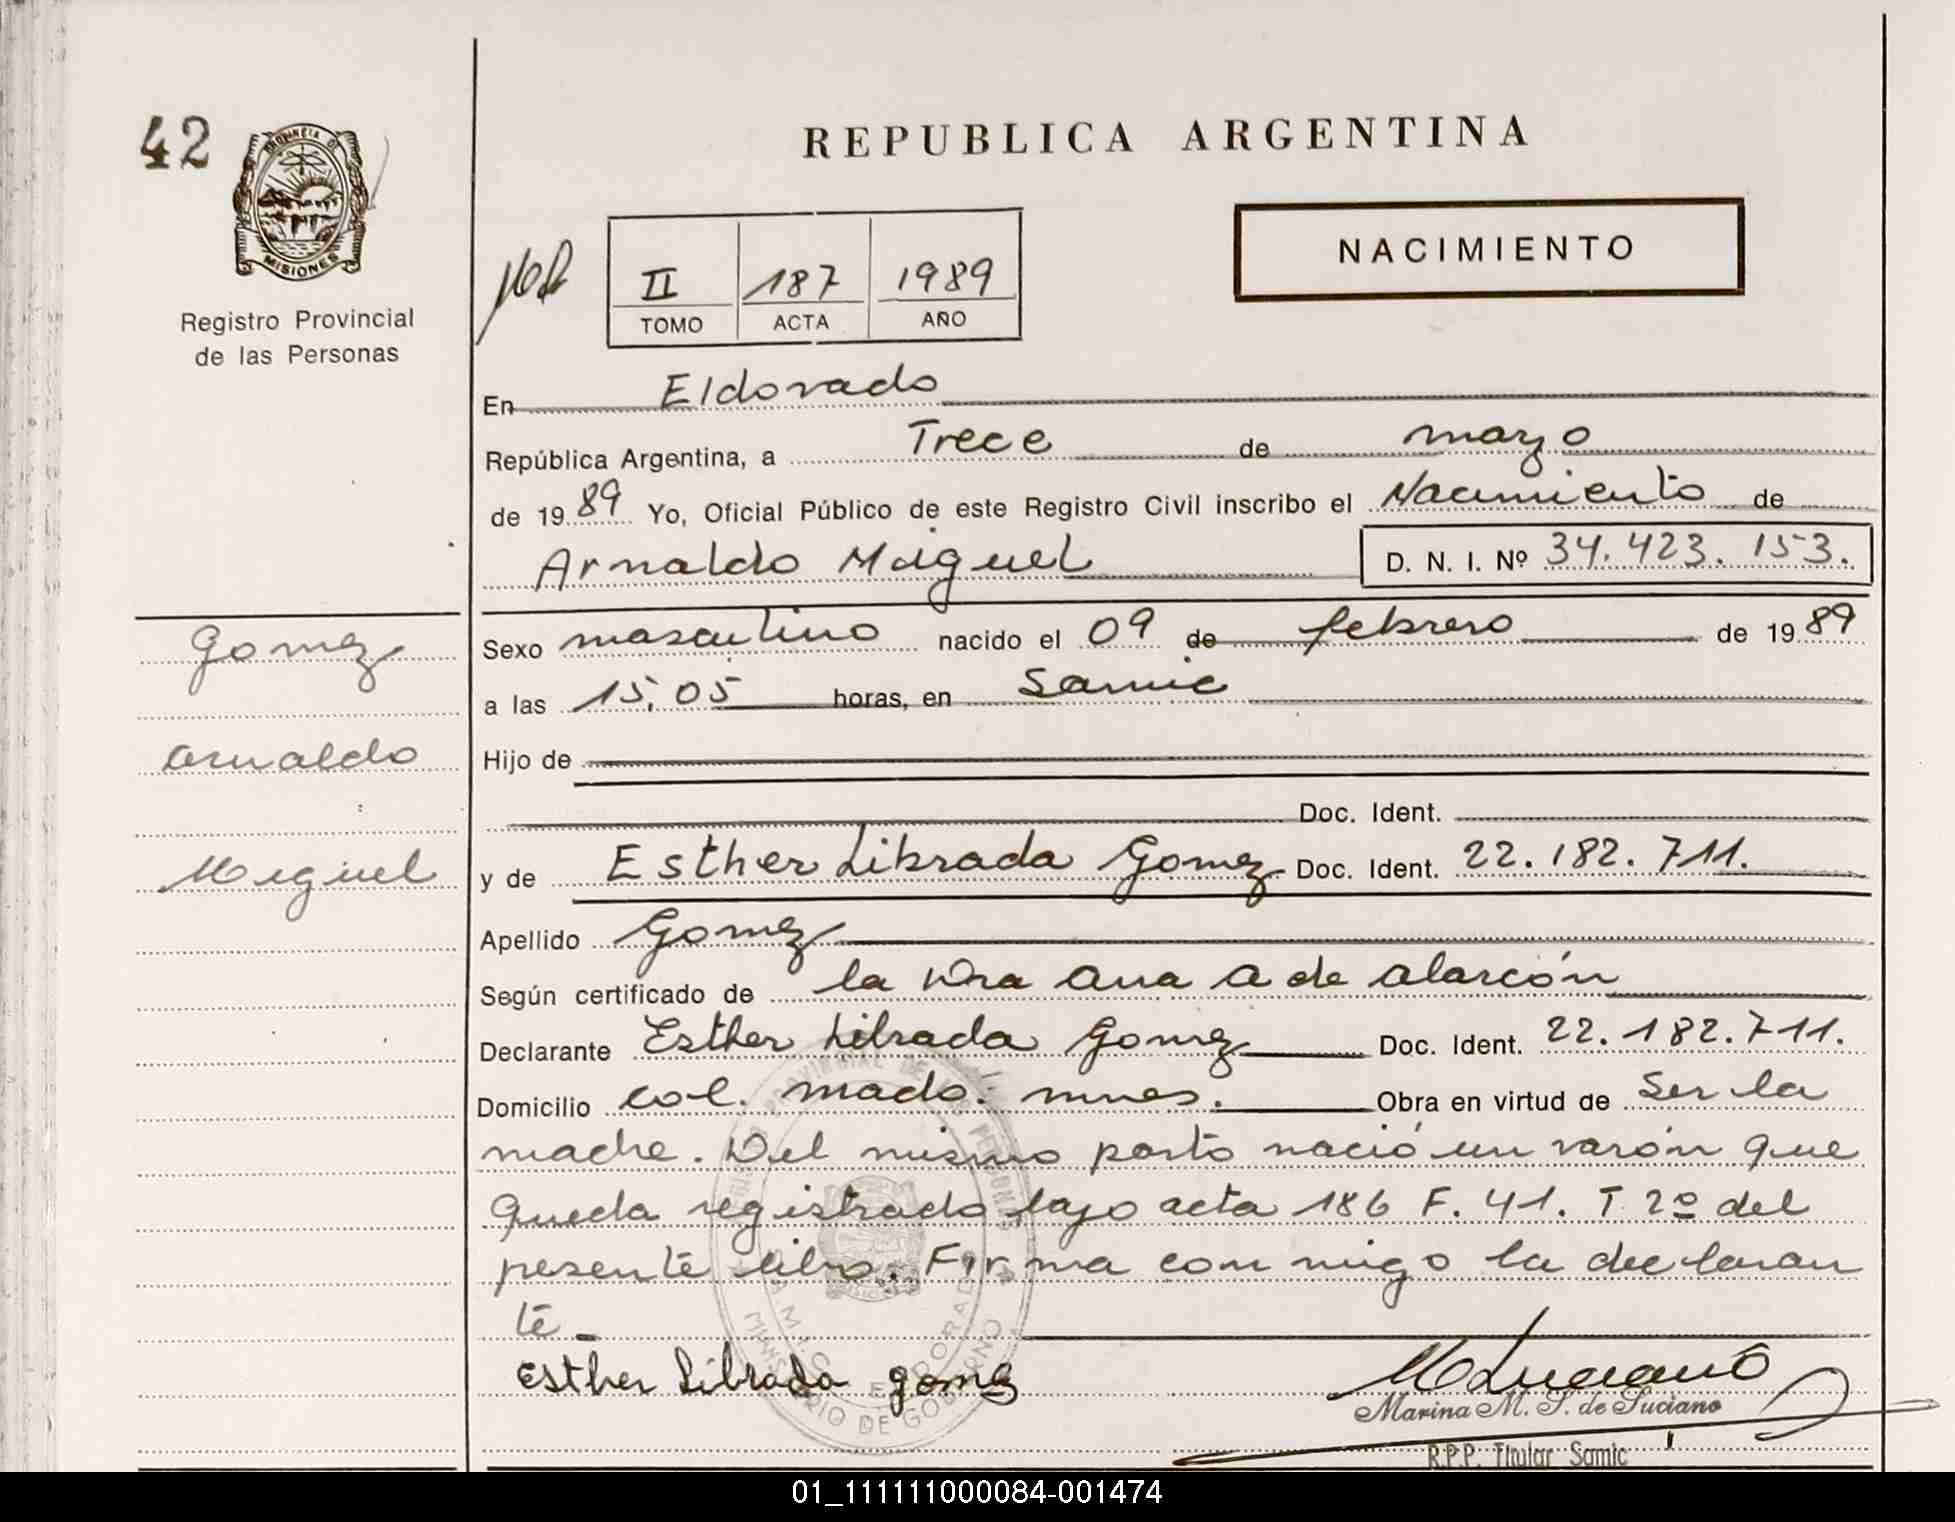 42
PROVINCIA DE
MISIONES
Registro Provincial
de las Personas
REPUBLICA ARGENTINA
NACIMIENTO
II 187 1989
TOMO ACTA AÑO
En Eldorado
República Argentina, a Trece de marzo
de 19 89 Yo, Oficial Público de este Registro Civil inscribo el Nacimiento de
Arnaldo Miguel D. N. I. Nº 34.423.153.
Gomez
Arnaldo
Miguel
Sexo masculino nacido el 09 de febrero de 19 89
a las 15,05 horas, en Samic
Hijo de
Doc. Ident.
y de Esther Librada Gomez Doc. Ident. 22.182.711.
Apellido Gomez
Según certificado de la Dra Ana A de Alarcón
Declarante Esther Librada Gomez Doc. Ident. 22.182.711.
Domicilio col. mado. mnes. Obra en virtud de Ser la
madre. Del mismo parto nació un varón que
queda registrado bajo acta 186 F. 41. T 2º del
pesente libro. Firma con migo la declaran
te
Esther Librada gomez
Marina M. S. de Luciano
R.P.P. Titular Samic
01_111111000084-001474